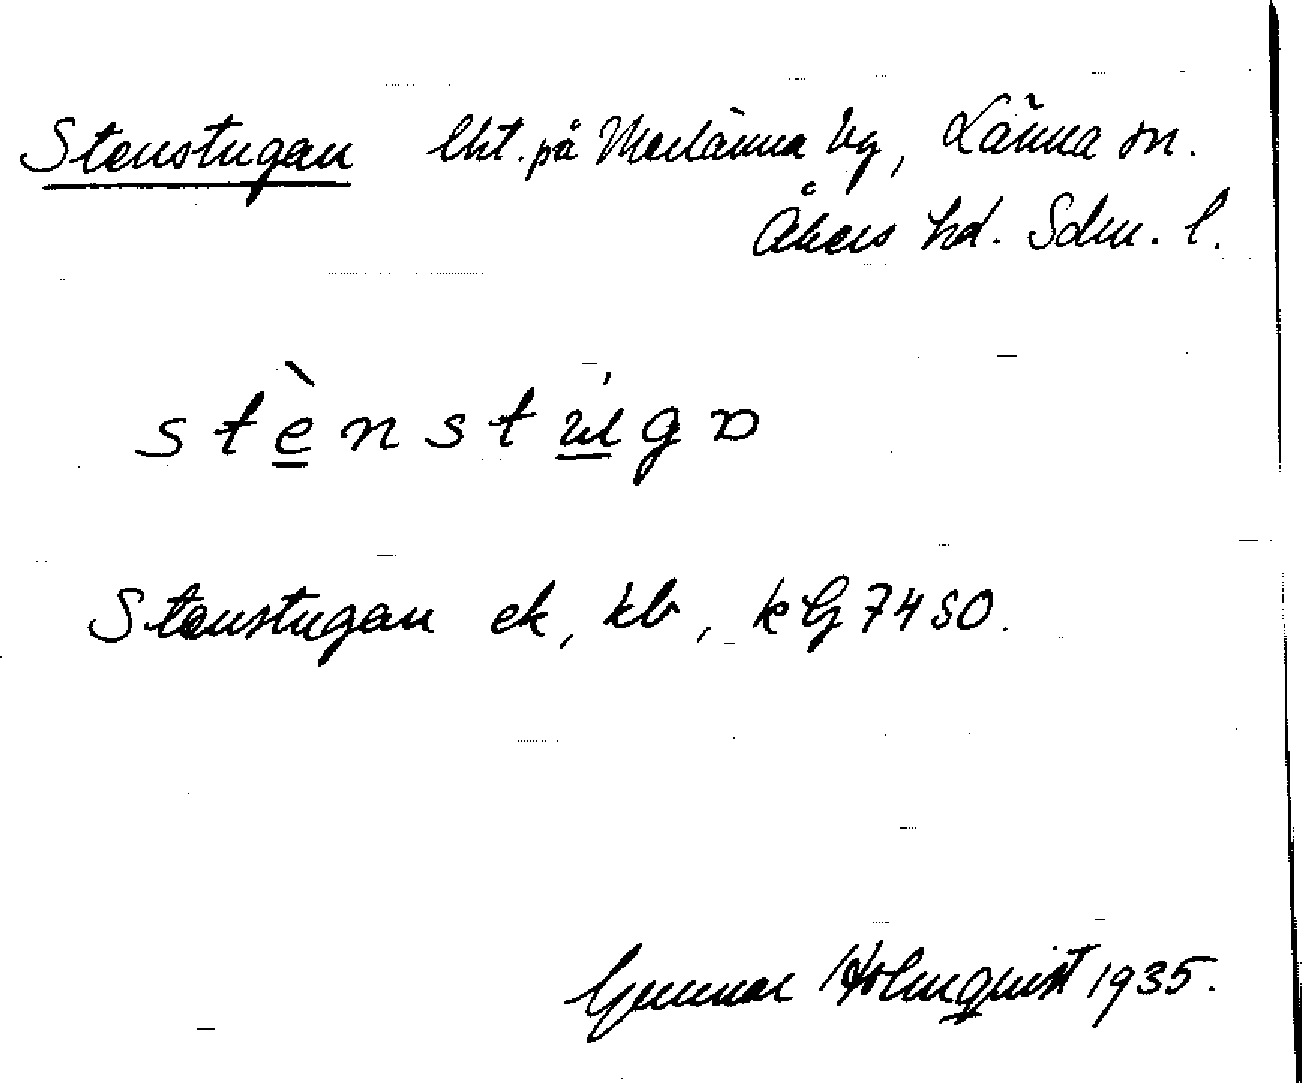 Stenstugan lht. på Merlänna hg, Länna sn.
Åkers hd. Sdm. l.
stènstúgɒ
Stenstugan ek, kb, kG 74 SO.
Gunnar Holmquist 1935.